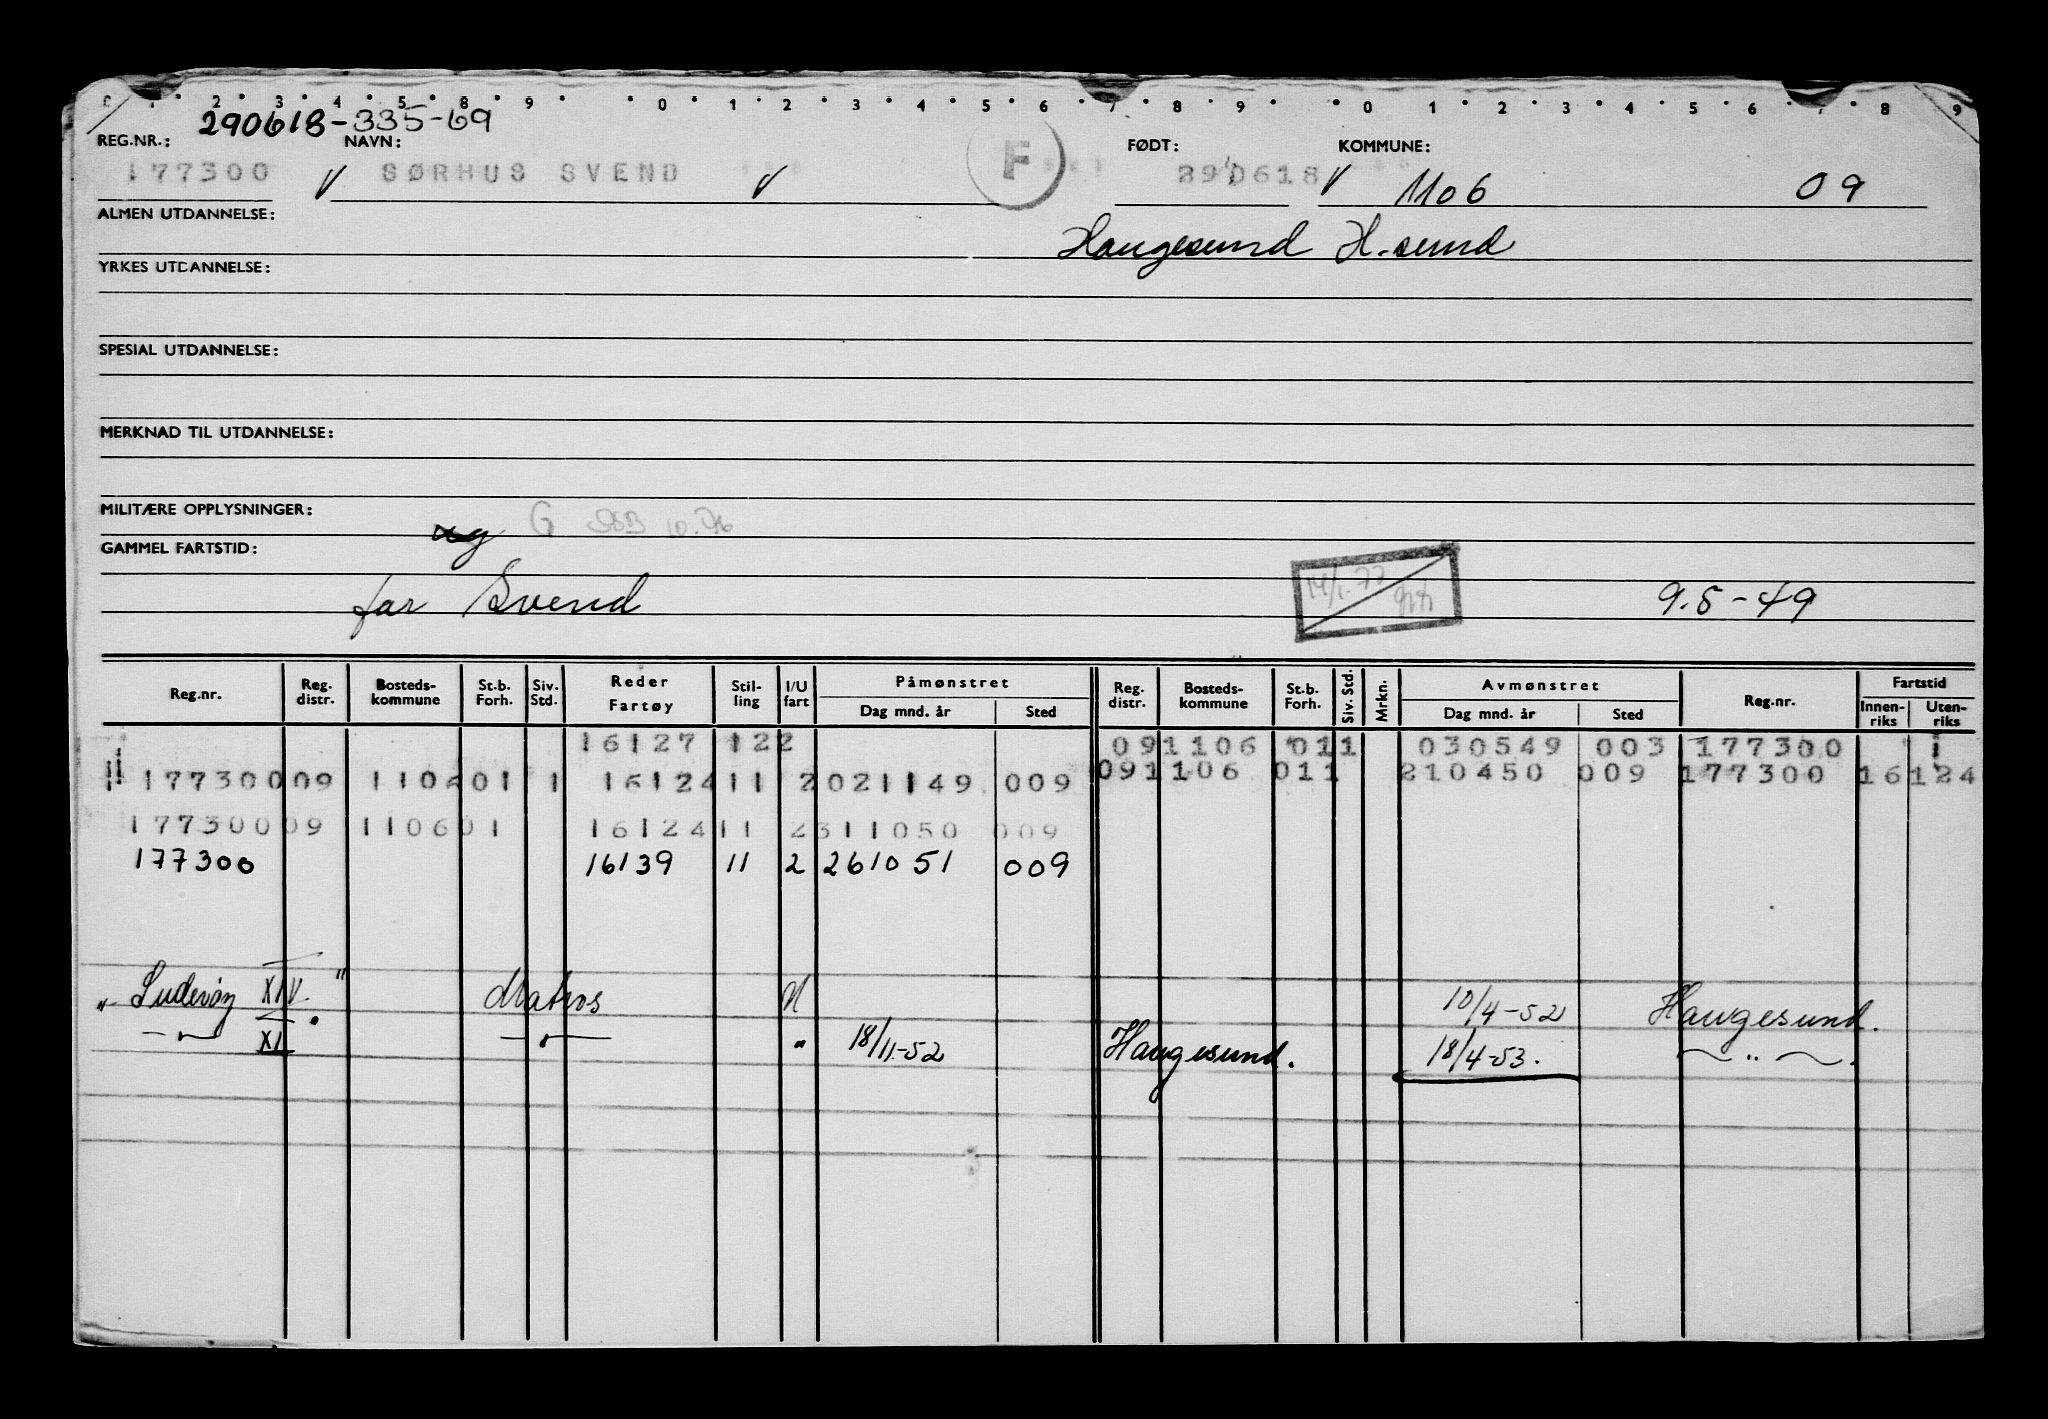 0 1 2 3 4 5 8 9 0 1 2 3 4 5 6 7 8 9 0 1 2 3 4 5 6 7 8 9
290618-335-69
REG.NR.: NAVN: FØDT: KOMMUNE:
177300 V SØRHUS SVEND V F 290618 V 1106 09
ALMEN UTDANNELSE:
Haugesund H.sund
YRKES UTDANNELSE:
SPESIAL UTDANNELSE:
MERKNAD TIL UTDANNELSE:
MILITÆRE OPPLYSNINGER:
G
GAMMEL FARTSTID:
far Svend 9.5-49
Reg.nr. Reg. distr. Bosteds- kommune St.b. Forh. Siv. Std. Reder Fartøy Stil- ling I/U fart Påmønstret Dag mnd. år Sted Reg. distr. Bosteds- kommune St.b. Forh. Siv. Std. Mrkn. Avmønstret Dag mnd. år Sted Reg.nr. Fartstid Innen- riks Uten- riks
16127 122 091106 011 030549 003 177300 1
177300 09 1106 01 1 16124 11 2 021149 009 091106 011 210450 009 177300 16124
177300 09 1106 01 16124 11 2 311050 009
177300 16139 11 2 261051 009
" Suderøy XIV." Matros U 10/4-52 Haugesund.
-"- XI -"- " 18/11-52 Haugesund. 18/4-53. -"-